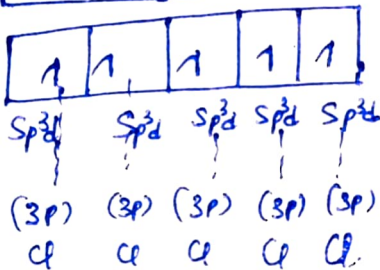 1 1 1 1 1
Sp³d Sp³d Sp³d Sp³d Sp³d
(3p) (3p) (3p) (3p) (3p)
Cl Cl Cl Cl Cl